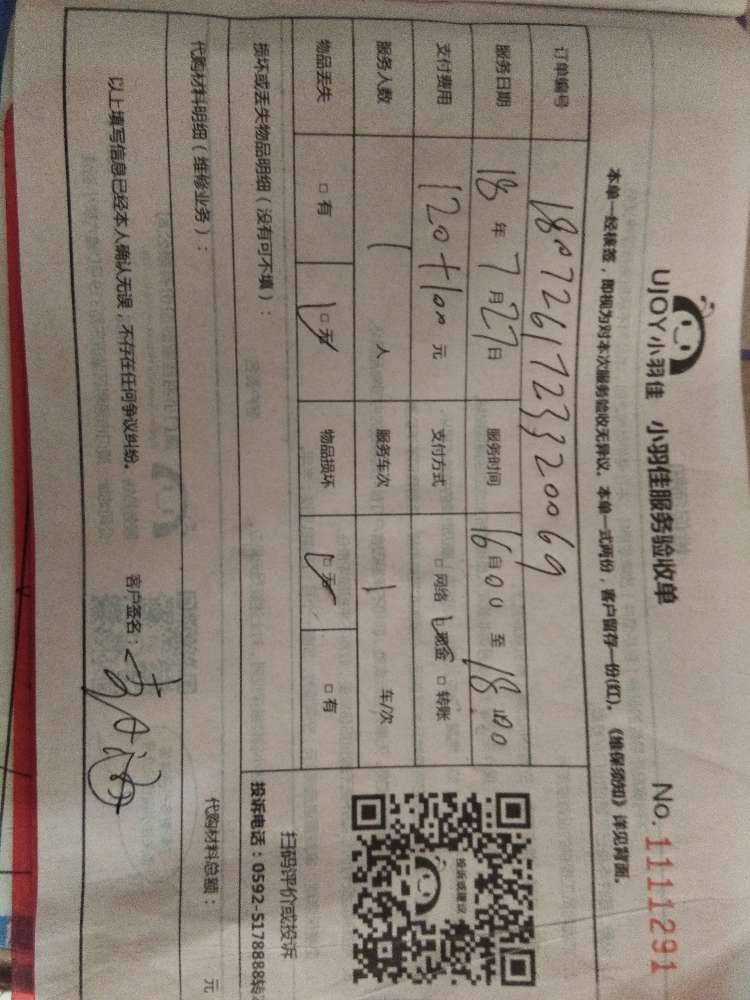 UJOY小羽佳 小羽佳服务验收单 No. 1111291
本单一经核签，即视为对本次服务验收无异议。本单一式两份，客户留存一份(红)。《维保须知》详见背面。
订单编号 1807261723320069
服务日期 18年7月27日 服务时间 16自00至18:00
支付费用 120+100元 支付方式 □网络 □现金 □转账
服务人数 1人 服务车次 1车/次
物品丢失 □有 □无 物品损坏 □无 □有
投诉或建议
扫码评价或投诉
投诉电话：0592-5178888转
损坏或丢失物品明细（没有可不填）：
代购材料明细（维修业务）： 代购材料总额： 元
以上填写信息已经本人确认无误，不存在任何争议纠纷。 客户签名：